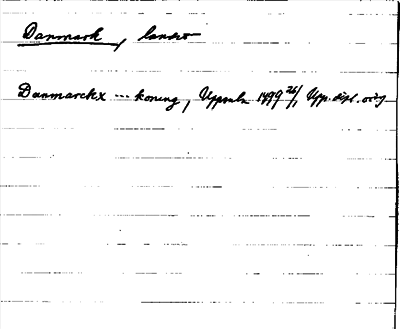 Danmark, landet
Danmarckx --- koning, Uppsala 1499 26/1, Upp. dipl. orig